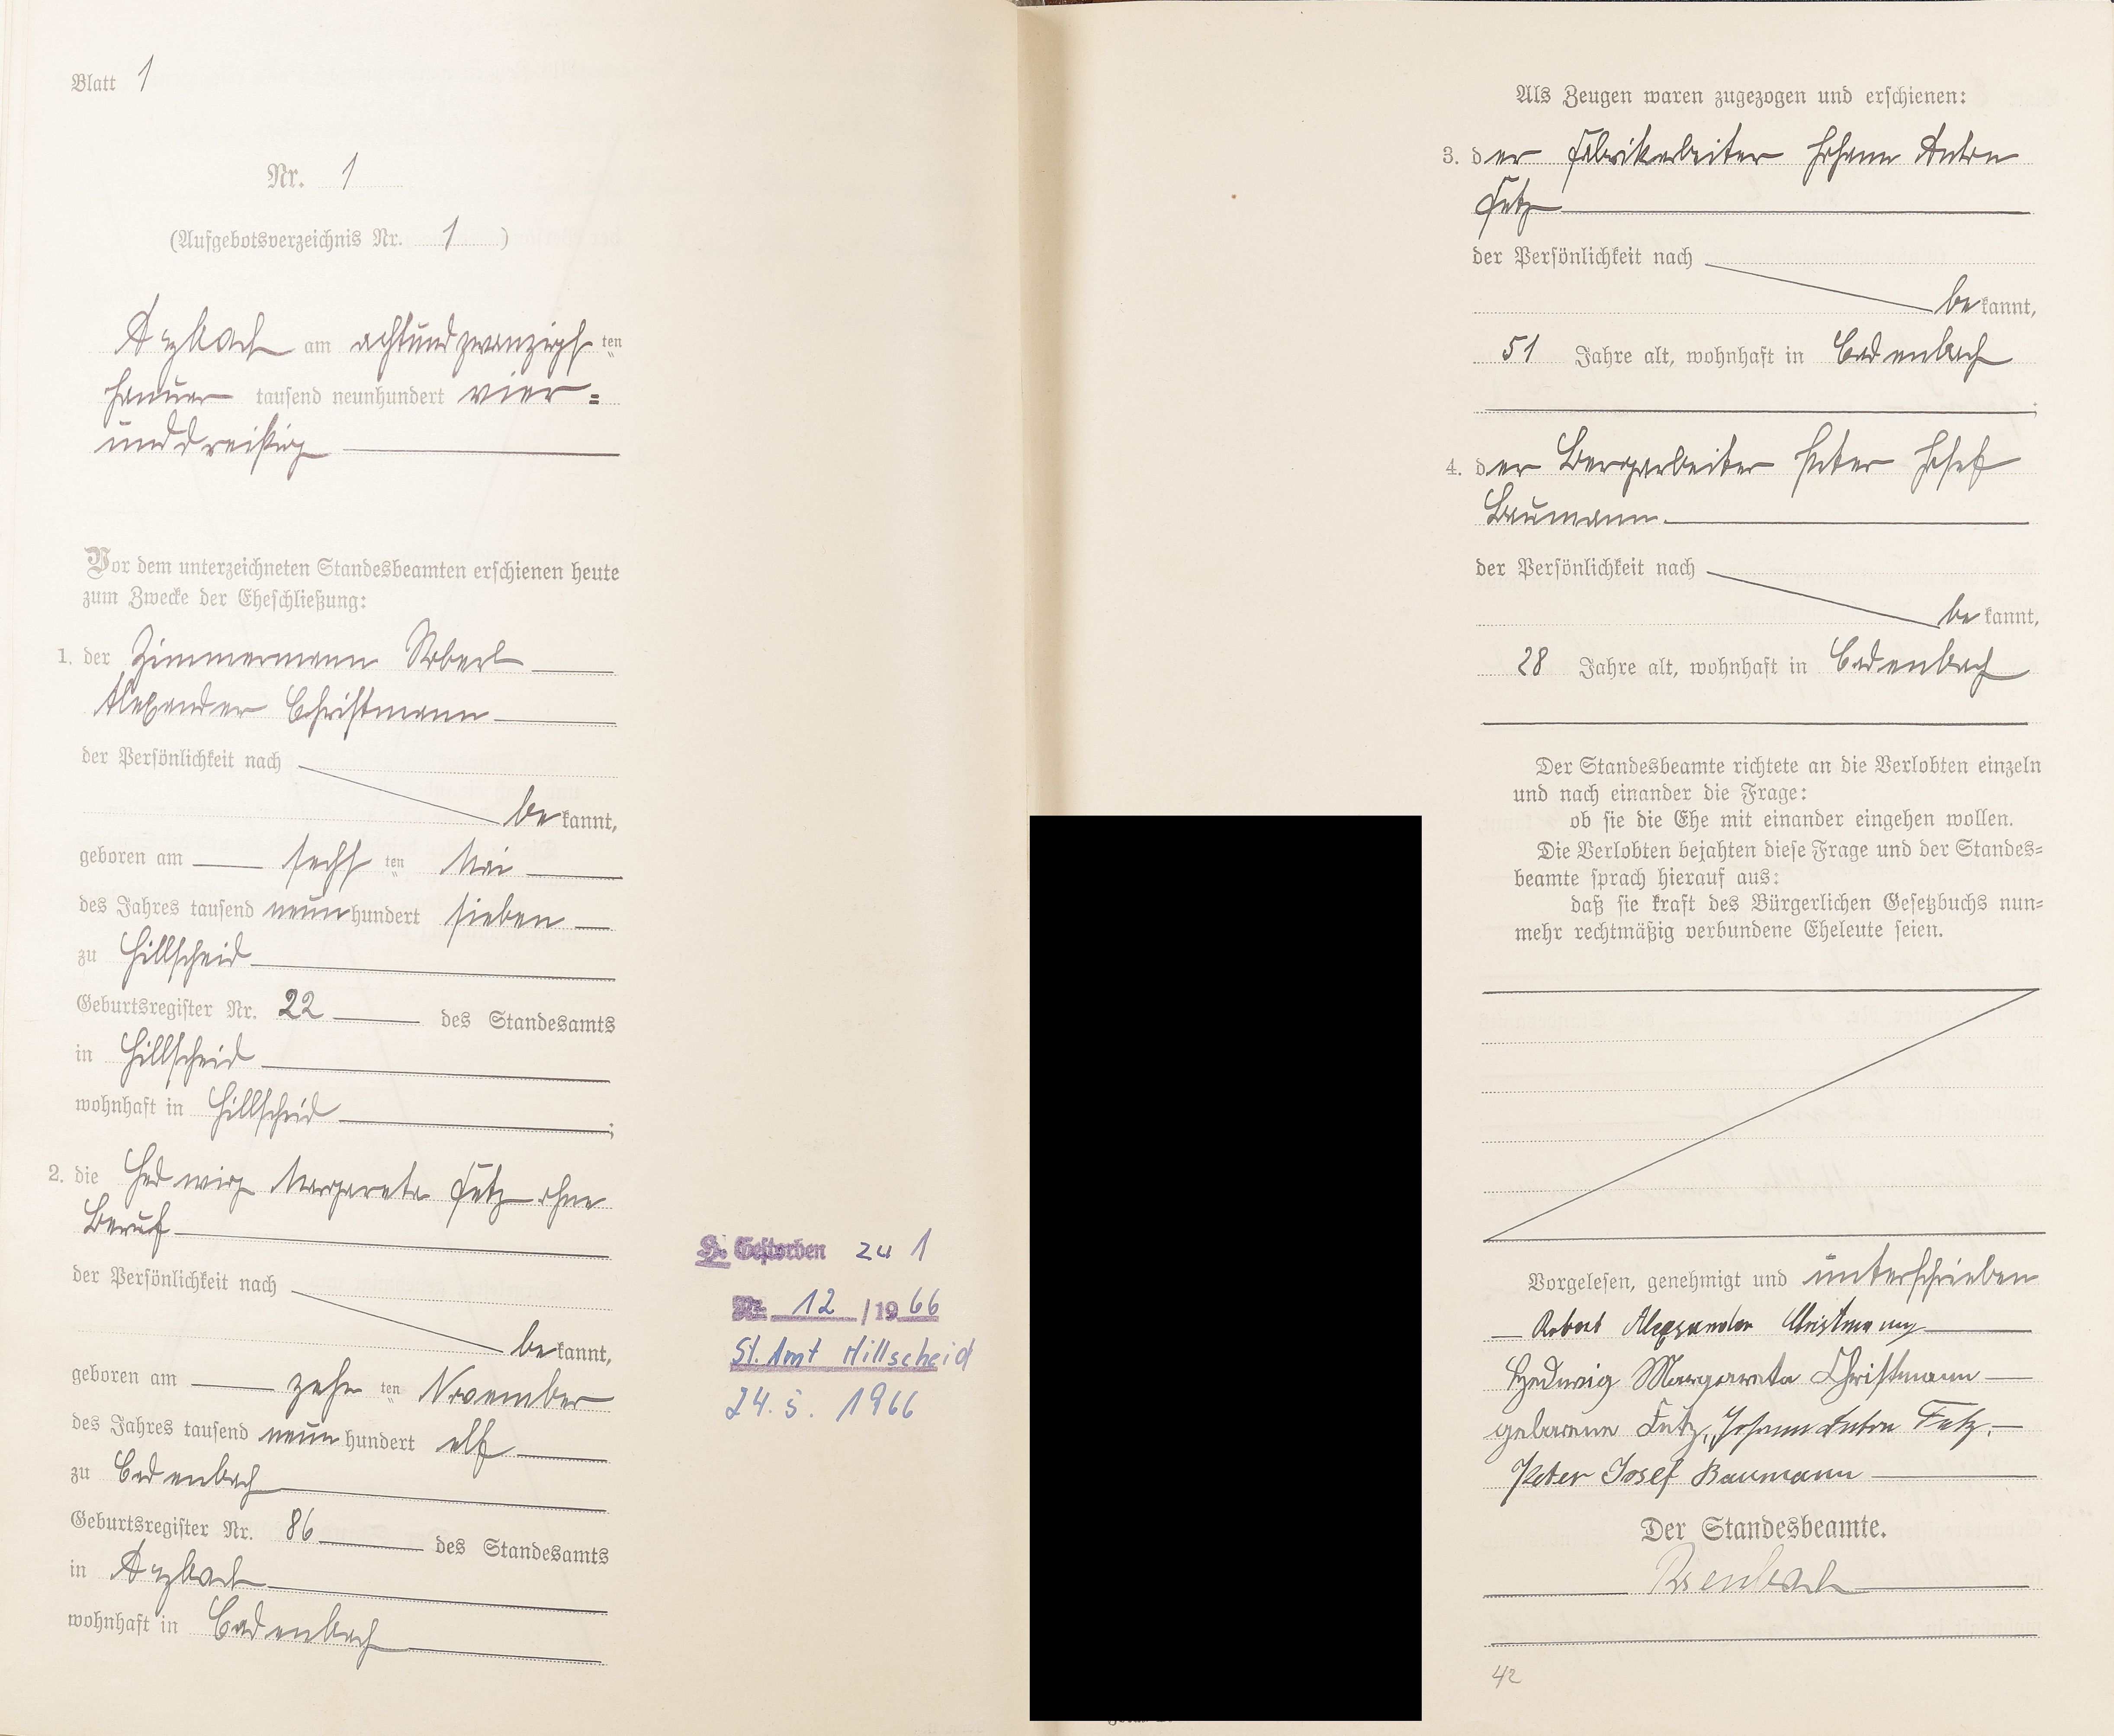 Blatt 1
Nr. 1
(Aufgebotsverzeichnis Nr. 1)
Arzbach am achtundzwanzigsten
Januar tausend neunhundert vier=
unddreißig
Vor dem unterzeichneten Standesbeamten erschienen heute
zum Zwecke der Eheschließung:
1. der Zimmermann Robert
Alexander Christmann
der Persönlichkeit nach
bekannt,
geboren am sechsten Mai
des Jahres tausend neunhundert sieben
zu Hillscheid
Geburtsregister Nr. 22 des Standesamts
in Hillscheid
wohnhaft in Hillscheid;
2. die Hedwig Margareta Fetz ohne
Beruf
der Persönlichkeit nach
bekannt,
geboren am zehnten November
des Jahres tausend neunhundert elf
zu Cadenbach
Geburtsregister Nr. 86 des Standesamts
in Arzbach
wohnhaft in Cadenbach
Gestorben zu 1
Nr. 12 /1966
St. Amt Hillscheid
24. 5. 1966
Als Zeugen waren zugezogen und erschienen:
3. der Fabrikarbeiter Johann Anton
Fetz
der Persönlichkeit nach
bekannt,
51 Jahre alt, wohnhaft in Cadenbach
;
4. der Bergarbeiter Peter Josef
Baumann.
der Persönlichkeit nach
bekannt,
28 Jahre alt, wohnhaft in Cadenbach
Der Standesbeamte richtete an die Verlobten einzeln
und nach einander die Frage:
ob sie die Ehe mit einander eingehen wollen.
Die Verlobten bejahten diese Frage und der Standes=
beamte sprach hierauf aus:
daß sie kraft des Bürgerlichen Gesetzbuchs nun=
mehr rechtmäßig verbundene Eheleute seien.
Vorgelesen, genehmigt und unterschrieben
Robert Alexander Christmann
Hedwig Margareta Christmann
geborene Fetz, Johann Anton Fetz.
Peter Josef Baumann
Der Standesbeamte.
42